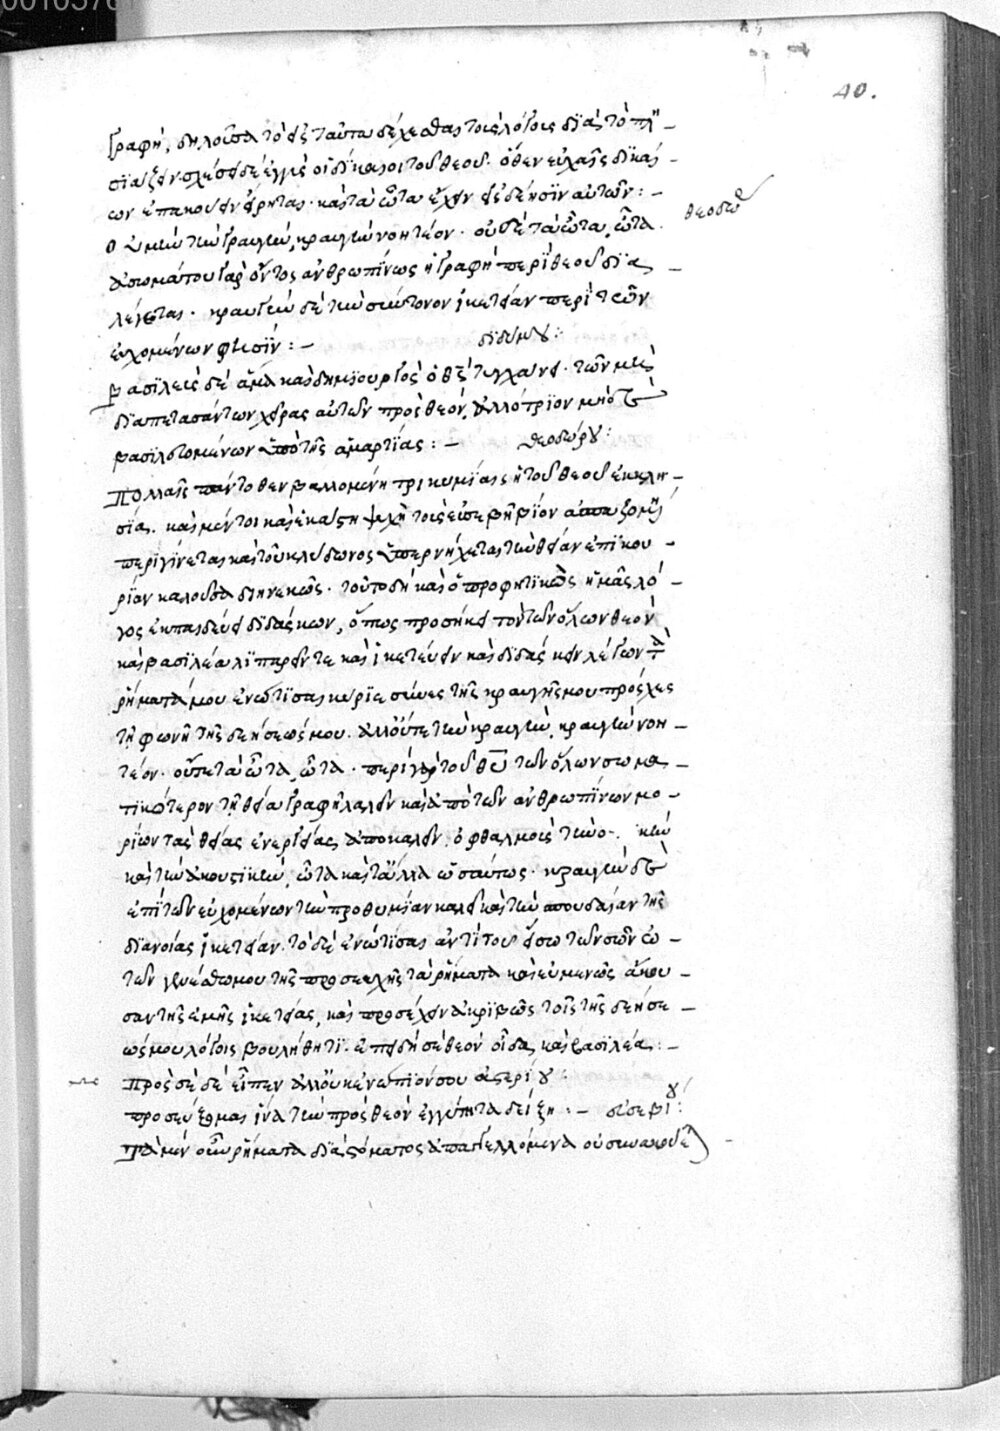 40.
γραφή, δηλοῦσα τὸ ἐξ ταύτου δέχεσθαι τοὺς λόγους διὰ τὸ πλη
σιάζειν. σχέσει δὲ ἐγγὺς οἱ δίκαιοι τοῦ θεοῦ. ὅθεν εὐχαῖς δικαί
ων ἐπακούειν εἴρηται. καὶ τὰ ὦτα ἔχειν εἰς δέησιν αὐτῶν: –
θεοδώ
οὐ μὴν τὴν κραυγὴν, κραυγὴν νοητέον. οὐδὲ τὰ ὦτα, ὦτα.
ἀσωμάτου γὰρ ὄντος ἀνθρωπίνως ἡ γραφὴ περὶ θεοῦ δια
λέγεται. κραυγὴν δὲ τὴν σύντονον ἱκετείαν περὶ τῶν
εὐχομένων φησίν: –
διδύμου:
βασιλεὺς δὲ ἅμα καὶ δημιουργὸς ὁ θς τυγχάνει. τῶν μὲν
διαπετασάντων χεῖρας αὐτῶν πρὸς θεὸν ἀλλότριον μὴ δὲ
βασιλευομένων ὑπὸ τῆς ἁμαρτίας: –
θεοδώρου:
Πολλαῖς πάντοθεν βαλλομένη τρικυμίαις ἡ τοῦ θεοῦ ἐκκλη
σία. καὶ μέντοι καὶ ἑκάστη ψυχὴ τοῖς εὐσεβῆ βίον ἀσπαζομένοις
περιγίνεται καὶ τοῦ κλύδωνος ὑπερνήχεται τὴν θείαν ἐπικου
ρίαν καλοῦσα διηνεκῶς. τοῦτο δὴ καὶ ὁ προφητικὸς ἡμᾶς λό
γος ἐκπαιδεύει διδάσκων, ὅπως προσήκει τὸν τῶν ὅλων θεὸν
καὶ βασιλέα λιπαρεῖν τε καὶ ἱκετεύειν καὶ διδάσκειν λέγων τὰ
ῥήματά μου ἐνώτισαι κύριε σύνες τῆς κραυγῆς μου πρόσχες
τῇ φωνῇ τῆς δεήσεώς μου. ἀλλ' οὔτε τὴν κραυγὴν, κραυγὴν νοη
τέον. οὔτε τὰ ὦτα, ὦτα. περὶ γὰρ τοῦ θῦ τῶν ὅλων σωμα
τικώτερον τῇ θείᾳ γραφῇ λαλεῖν καὶ ἀπὸ τῶν ἀνθρωπίνων μο
ρίων τὰς θείας ἐνεργείας ἀποκαλεῖν. ὀφθαλμοὺς τὴν ο. κὴν
καὶ τὴν ἀκουστικὴν, ὦτα καὶ τἄλλα ὡσαύτως. κραυγὴν δὲ
ἐπὶ τῶν εὐχομένων τὴν προθυμίαν καλεῖ καὶ τὴν σπουδαίαν τῆς
διανοίας ἱκετείαν. τὸ δὲ ἐνώτισαι ἀντὶ τοῦ εἴσω τῶν σῶν ὤ
των γενέσθω μου τῆς προσευχῆς τὰ ῥήματα καὶ εὐμενῶς ἄκου
σαν τῆς ἐμῆς ἱκετείας, καὶ προσέχειν ἀκριβῶς τοῖς τῆς δεήσε
ώς μου λόγοις βουλήθητι. ἐπειδὴ σὲ θεὸν οἶδα καὶ βασιλέα: –
Πρὸς σὲ δὲ εἶπεν ἀλλ' οὐκ ἐνώπιόν σου ἀστερίου:
προσεύξομαι ἵνα τὴν πρὸς θεὸν ἐγγύτητα δείξῃ: – εὐσεβίου:
Τὰ μὲν οὖν ῥήματα διὰ στόματος ἀπαγγελλόμενα